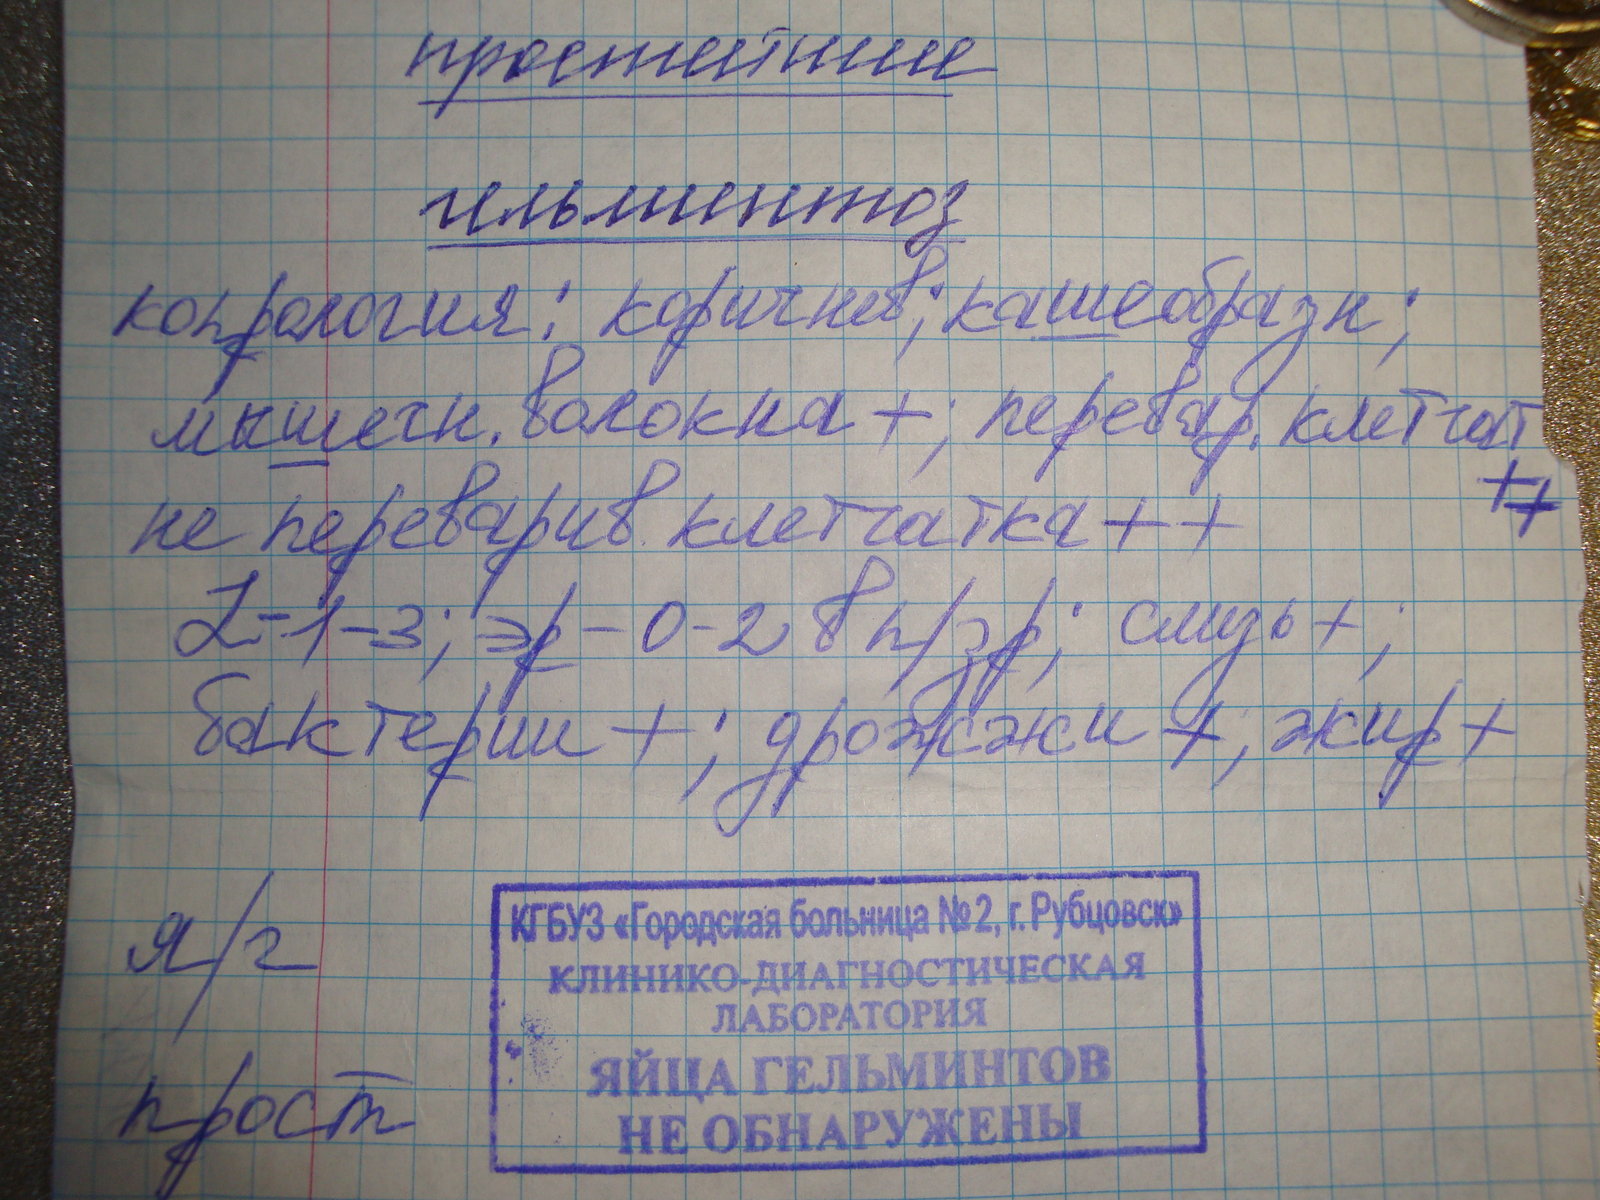 простейшие
гельминтоз
копрология: коричнев; кашеобразн;
мышечн. волокна +; перевар. клетчат
++
не переварив. клетчатка ++
L-1-3; эр - 0-2 в п/зр; слизь +;
бактерии +; дрожжи +; жир +
я/г
прост
КГБУЗ «Городская больница №2, г. Рубцовск»
КЛИНИКО-ДИАГНОСТИЧЕСКАЯ
ЛАБОРАТОРИЯ
ЯЙЦА ГЕЛЬМИНТОВ
НЕ ОБНАРУЖЕНЫ